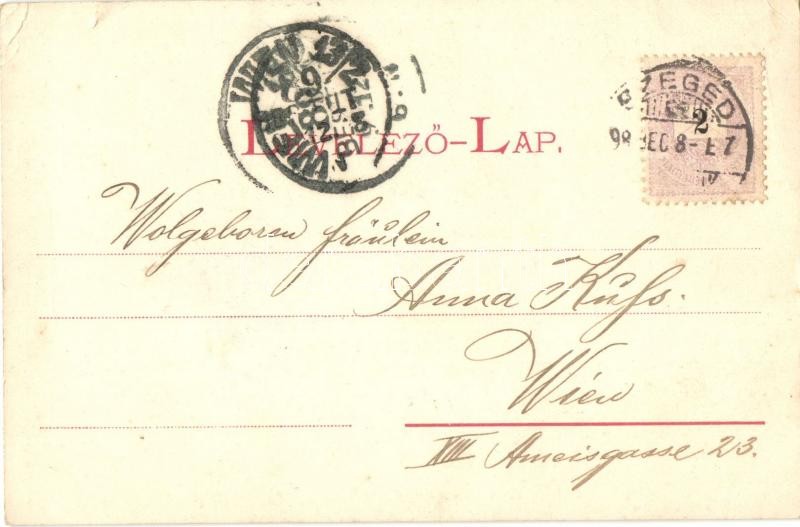 LEVELEZŐ-LAP.
SZEGED
2
98 DEC 8
Wolgeboren fräulein
Anna Kuhs.
Wien
XIII Ameisgasse 23.